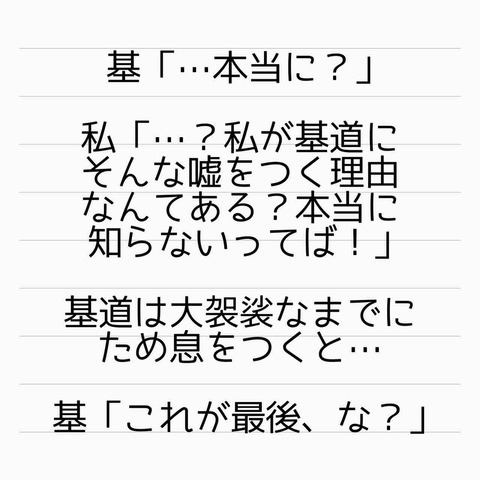 基「…本当に？」
私「…？私が基道に
そんな嘘をつく理由
なんてある？本当に
知らないってば！」
基道は大袈裟なまでに
ため息をつくと…
基「これが最後、な？」